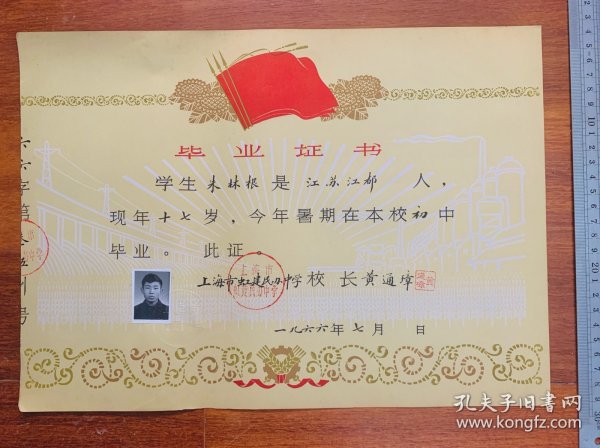 毕业证书
学生朱林根是江苏江都人，
现年十七岁，今年暑期在本校初中
毕业。此证。
上海市虹建民办中学校长黄通璋
一九六六年七月 日
六六字第
号
孔夫子旧书网